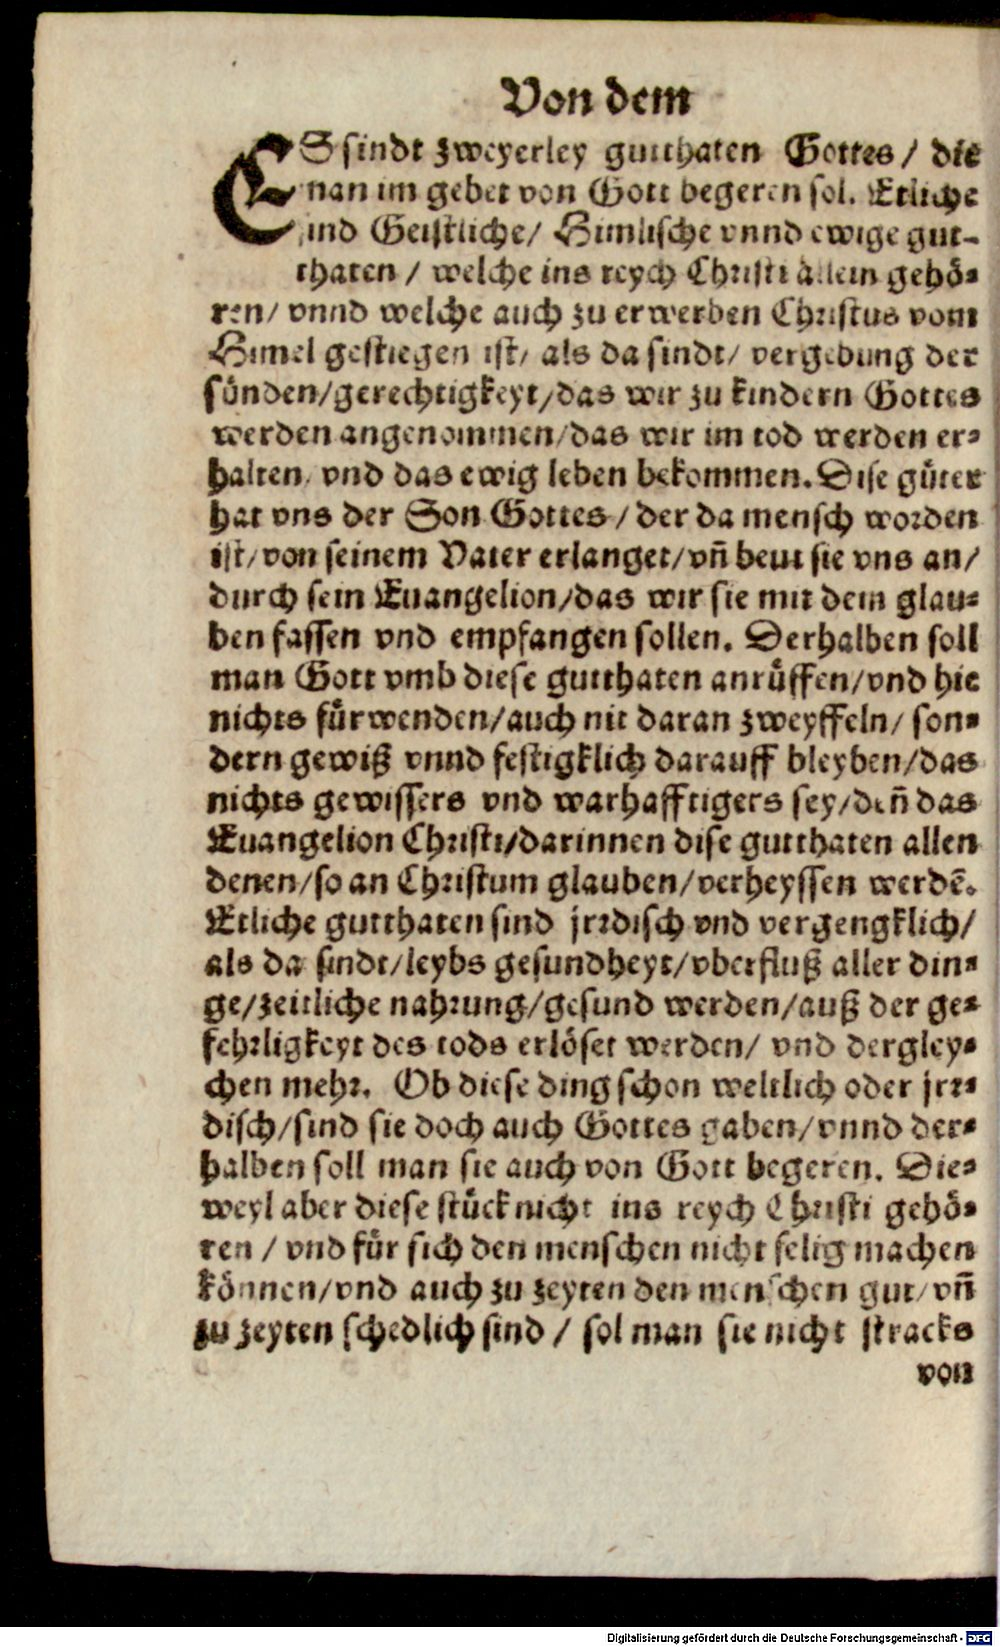 Von dem
ES sindt zweyerley gutthaten Gottes / die
man im gebet von Gott begeren sol. Etliche
sind Geistliche/ Himlische vnnd ewige gut-
thaten / welche ins reych Christi allein gehö-
ren/ vnnd welche auch zu erwerben Christus vom
Himel gestiegen ist/ als da sindt/ vergebung der
sünden/gerechtigkeyt/das wir zu kindern Gottes
werden angenommen/das wir im tod werden er-
halten/ vnd das ewig leben bekommen. Dise güter
hat vns der Son Gottes / der da mensch worden
ist/von seinem Vater erlanget/vn̄ beut sie vns an/
durch sein Euangelion/das wir sie mit dem glau-
ben fassen vnd empfangen sollen. Derhalben soll
man Gott vmb diese gutthaten anrüffen/vnd hie
nichts fürwenden/auch nit daran zweyffeln/ son-
dern gewiß vnnd festigklich darauff bleyben/das
nichts gewissers vnd warhafftigers sey/den̄ das
Euangelion Christi/darinnen dise gutthaten allen
denen/so an Christum glauben/verheyssen werdē.
Etliche gutthaten sind jrrdisch vnd vergengklich/
als da sindt/leybs gesundheyt/vberfluß aller din-
ge/zeitliche nahrung/gesund werden/auß der ge-
fehrligkeyt des tods erlöset werden/ vnd dergley-
chen mehr. Ob diese ding schon weltlich oder jrr-
disch/sind sie doch auch Gottes gaben/vnnd der-
halben soll man sie auch von Gott begeren. Die-
weyl aber diese stück nicht ins reych Christi gehö-
ren / vnd für sich den menschen nicht selig machen
können/vnd auch zu zeyten den menschen gut/vn̄
zu zeyten schedlich sind / sol man sie nicht stracks
von
Digitalisierung gefördert durch die Deutsche Forschungsgemeinschaft - DFG